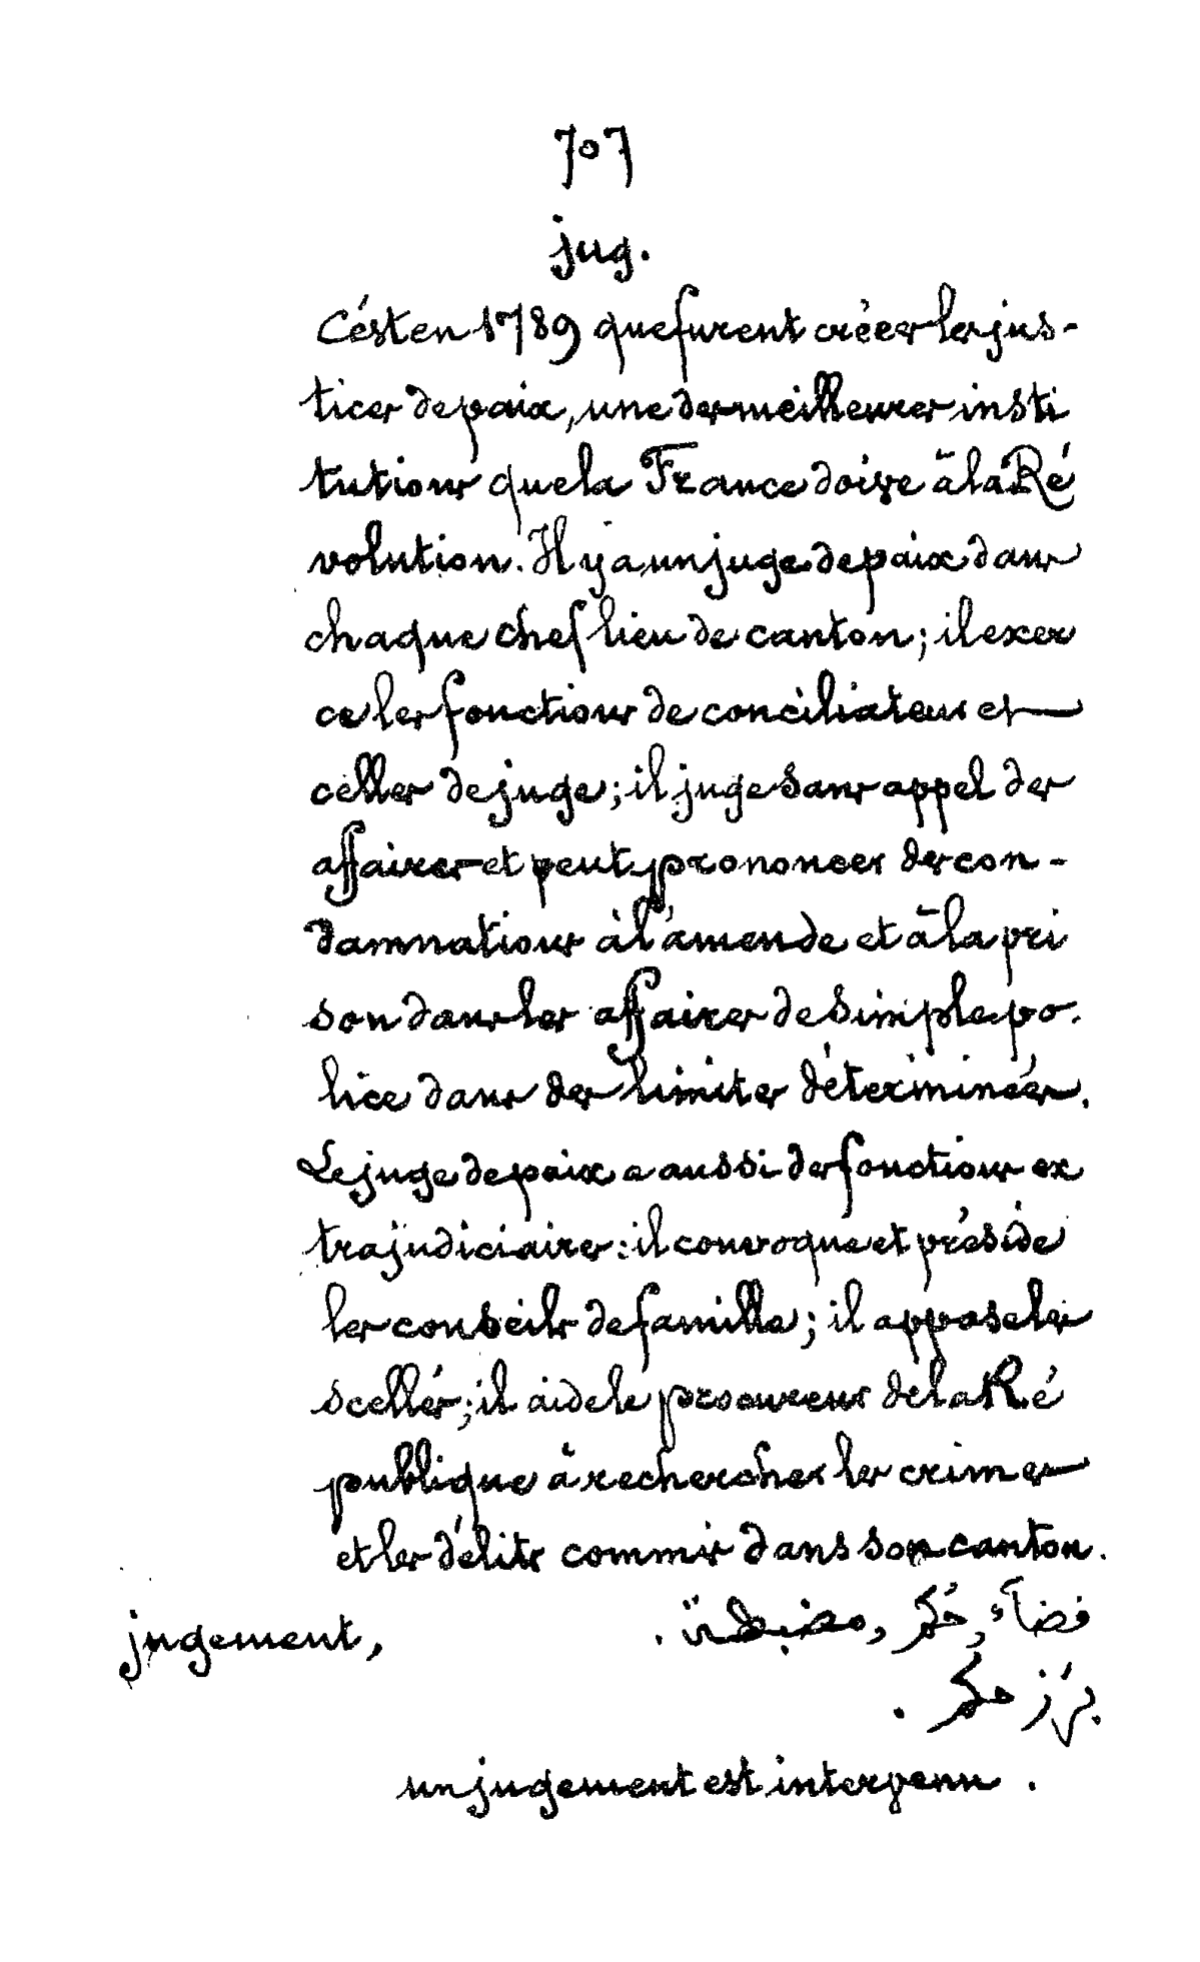 707
jug.
C'est en 1789 que furent créées les jus-
tices de paix, une des meilleures insti
tutions que la France doive à la Ré
volution. Il y a un juge de paix dans
chaque chef lieu de canton; il exer
ce les fonctions de conciliateur et
celles de juge; il juge sans appel des
affaires et peut prononcer des con-
damnations à l'amende et à la pri
son dans les affaires de simple po-
lice dans des limites déterminées.
Le juge de paix a aussi des fonctions ex
trajudiciaires: il convoque et préside
les conseils de famille; il appose les
scellés; il aide le procureur de la Ré
publique à rechercher les crimes
et les délits commis dans son canton.
jugement, قضآء, حُكم, مضبطة.
بَرَزَ حكمُ.
un jugement est intervenu.